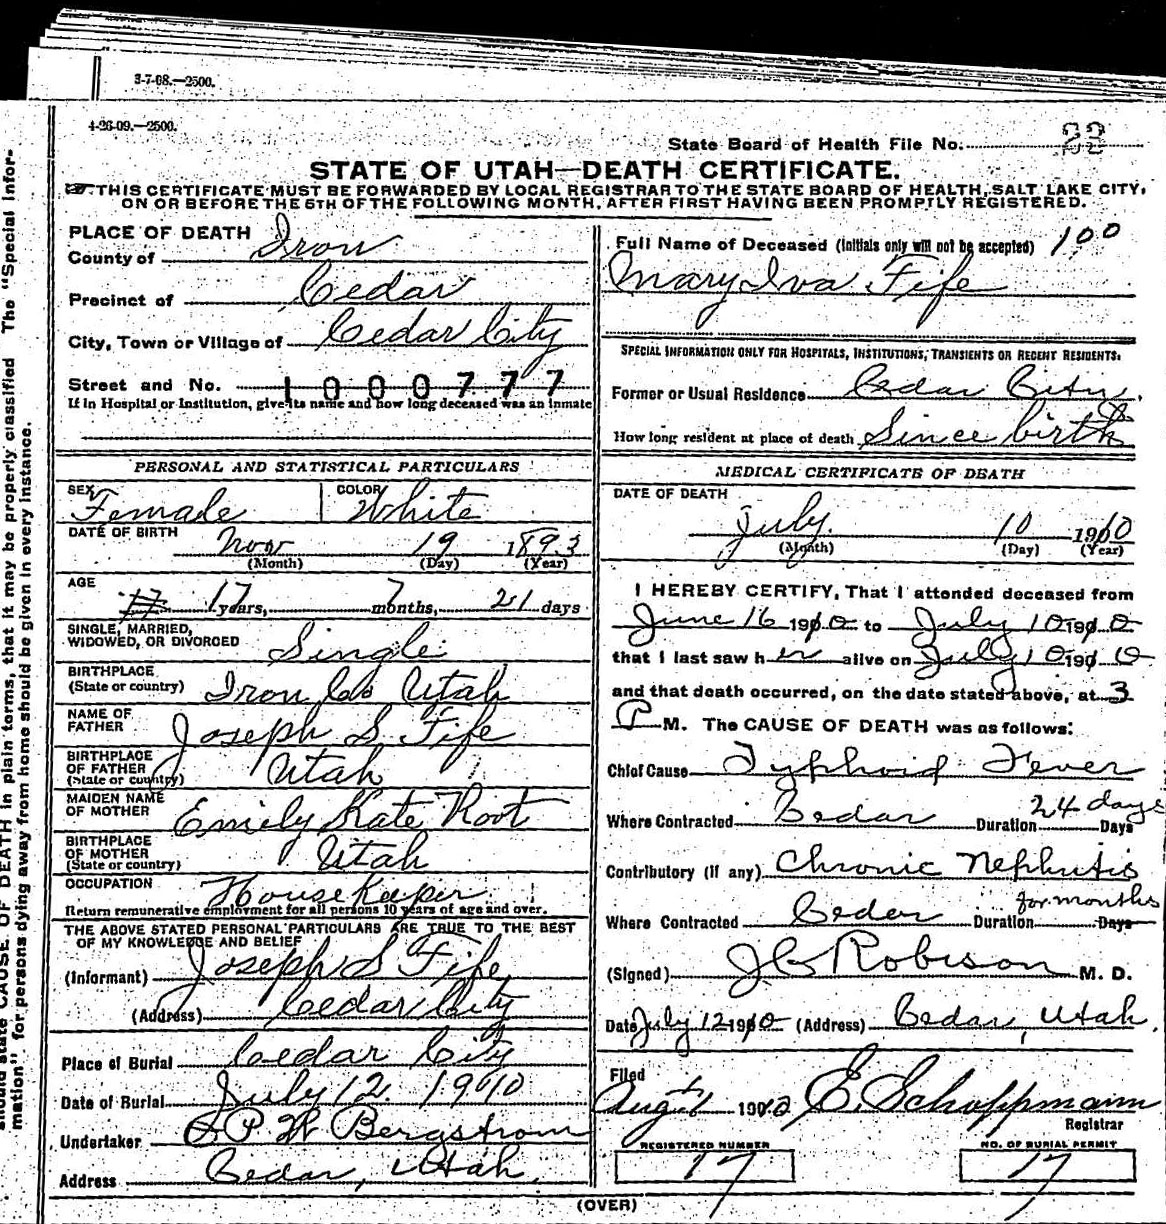 3-7-08.—2500.
4-26-09.—2500.
State Board of Health File No. 22
STATE OF UTAH—DEATH CERTIFICATE.
THIS CERTIFICATE MUST BE FORWARDED BY LOCAL REGISTRAR TO THE STATE BOARD OF HEALTH, SALT LAKE CITY,
ON OR BEFORE THE 5TH OF THE FOLLOWING MONTH, AFTER FIRST HAVING BEEN PROMPTLY REGISTERED.
PLACE OF DEATH
County of Iron
Precinct of Cedar
City, Town or Village of Cedar City
Street and No. 1000777
If in Hospital or Institution, give its name and how long deceased was an inmate
PERSONAL AND STATISTICAL PARTICULARS
SEX Female COLOR White
DATE OF BIRTH Nov 19 1893
(Month) (Day) (Year)
AGE 17 years, 7 months, 21 days
SINGLE, MARRIED,
WIDOWED, OR DIVORCED Single
BIRTHPLACE
(State or country) Iron Co Utah
NAME OF
FATHER Joseph S. Fife
BIRTHPLACE
OF FATHER
(State or country) Utah
MAIDEN NAME
OF MOTHER Emily Kate Root
BIRTHPLACE
OF MOTHER
(State or country) Utah
OCCUPATION HouseKeeper
Return remunerative employment for all persons 10 years of age and over.
THE ABOVE STATED PERSONAL PARTICULARS ARE TRUE TO THE BEST
OF MY KNOWLEDGE AND BELIEF
(Informant) Joseph S Fife
(Address) Cedar City
Place of Burial Cedar City
Date of Burial July 12. 1910
Undertaker P. W Bergstrom
Address Cedar, Utah.
Full Name of Deceased (Initials only will not be accepted) 100
Mary Iva Fife
SPECIAL INFORMATION ONLY FOR HOSPITALS, INSTITUTIONS, TRANSIENTS OR RECENT RESIDENTS.
Former or Usual Residence Cedar City,
How long resident at place of death Since birth
MEDICAL CERTIFICATE OF DEATH
DATE OF DEATH
July. 10 1910
(Month) (Day) (Year)
I HEREBY CERTIFY, That I attended deceased from
June 16 1910 to July 10 1910
that I last saw her alive on July 10 1910
and that death occurred, on the date stated above, at 3
P M. The CAUSE OF DEATH was as follows:
Chief Cause Typhoid Fever
Where Contracted Cedar Duration 24 days Days
Contributory (if any) Chronic Nephritis
Where Contracted Cedar Duration for months Days
(Signed) J C Robison M. D.
Date July 12 1910 (Address) Cedar, Utah.
Filed
Aug 1 1910 E. Schoppmann
Registrar
REGISTERED NUMBER NO. OF BURIAL PERMIT
17 17
(OVER)
should state CAUSE OF DEATH in plain terms, that it may be properly classified The "Special Infor-
mation" for persons dying away from home should be given in every instance.